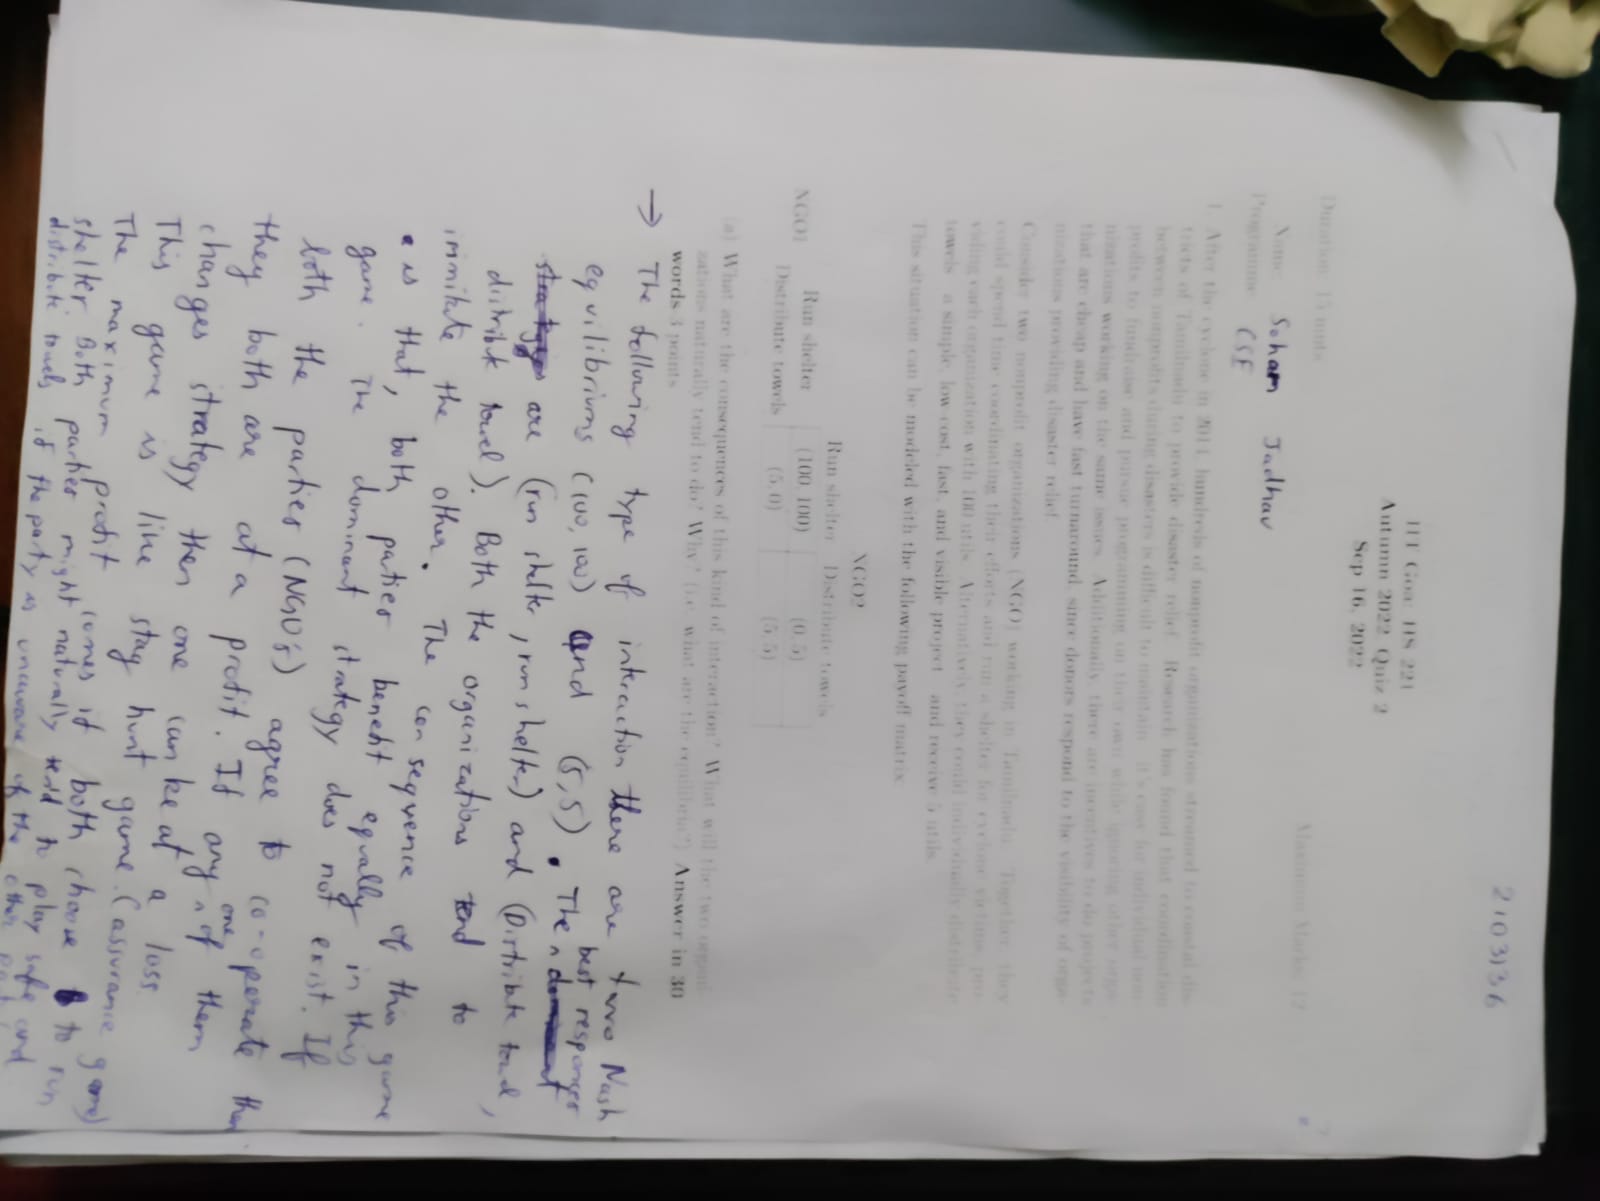 2103136
IIT Goa: HS 221
Autumn 2022 Quiz 2
Sep 16, 2022
Duration: 15 mnts
Maximum Marks: 12
Name: Soham Jadhav
Programme: CSE
1. After the cyclone in 2014, hundreds of nonprofit organizations streamed to coastal dis-
tricts of Tamilnadu to provide disaster relief. Research has found that coordination
between nonprofits during disasters is difficult to maintain it's easy for individual non-
profits to fundraise and pursue programming on their own while ignoring other orga-
nizations working on the same issues. Additionally, there are incentives to do projects
that are cheap and have fast turnaround, since donors respond to the visibility of orga-
nizations providing disaster relief.
Consider two nonprofit organizations (NGO) working in Tamilnadu. Together, they
could spend time coordinating their efforts and run a shelter for cyclone victims, pro-
viding each organization with 100 utils. Alternatively, they could individually distribute
towels a simple, low-cost, fast, and visible project and receive 5 utils.
This situation can be modeled with the following payoff matrix:
NGO2
Run shelter Distribute towels
NGO1 Run shelter (100, 100) (0, 5)
Distribute towels (5, 0) (5, 5)
(a) What are the consequences of this kind of interaction? What will the two organi-
zations naturally tend to do? Why? (i.e. what are the equilibria?) Answer in 30
words 3 points
→ The following type of interaction there are two Nash
equilibriums (100, 100) and (5,5). The best responses
are (run shelter, run shelter) and (Distribute towel,
distribute towel). Both the organizations tend to
immitate the other. The consequence of this game
is that, both parties benefit equally in this
game. The dominant strategy does not exist. If
both the parties (NGO's) agree to co-operate then
they both are at a profit. If any one of them
changes strategy then one can be at a loss.
This game is like stag hunt game. (assurance game)
The maximum profit comes if both choose to run
shelter. Both parties might naturally tend to play safe and
distribute towels if the party is unaware of the other